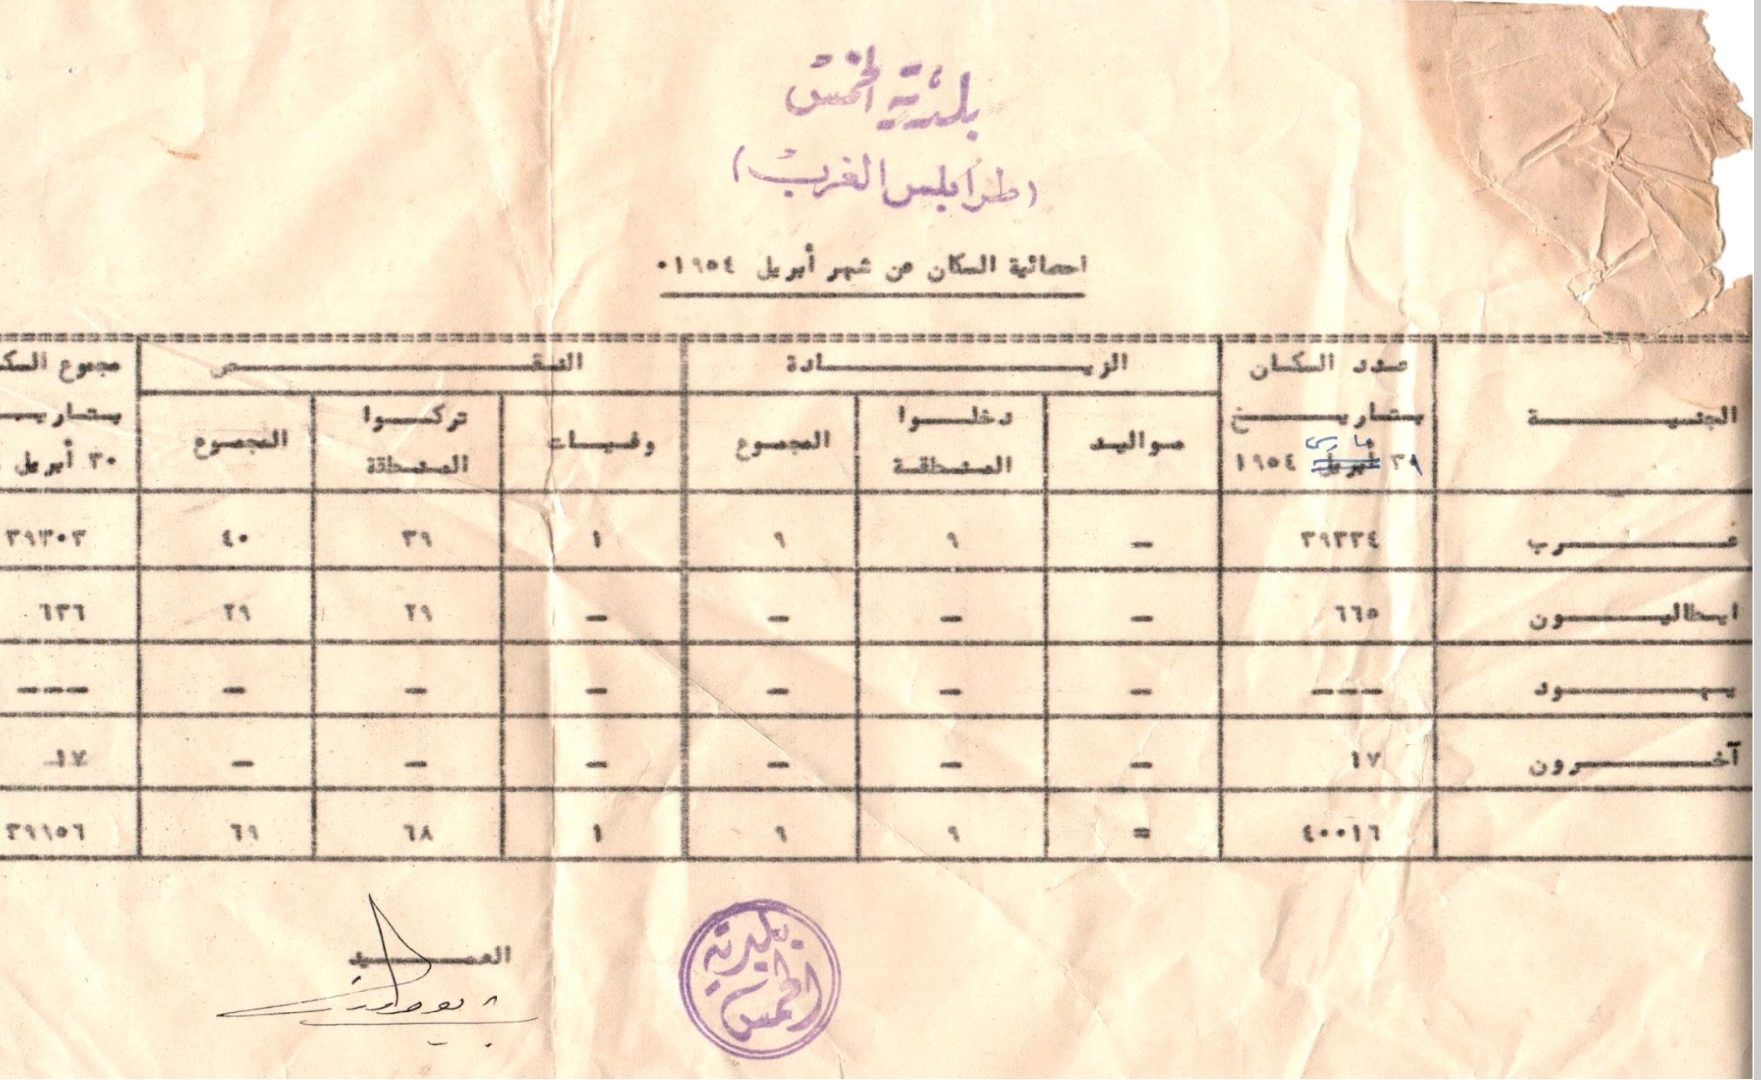 بلدية الخمس
(طرابلس الغرب)
احصائية السكان عن شهر أبريل ١٩٥٤٠
الجنسية عدد السكان بتاريخ ٣١ أبريل مارس ١٩٥٤ الزيادة النقص مجموع السكا بتاريـ ٣٠ أبريل
مواليد دخلوا المنطقة المجموع وفيات تركوا المنطقة المجموع
عرب ٣٩٣٣٤ — ٩ ٩ ١ ٣٩ ٤٠ ٣٩٣٠٣
ايطاليون ٦٦٥ — — — — ٢٩ ٢٩ ٦٣٦
يهود --- — — — — — — ---
آخرون ١٧ — — — — — — ١٧
٤٠٠١٦ = ٩ ٩ ١ ٦٨ ٦٩ ٣٩٩٥٦
العميد
بلدية
الخمس